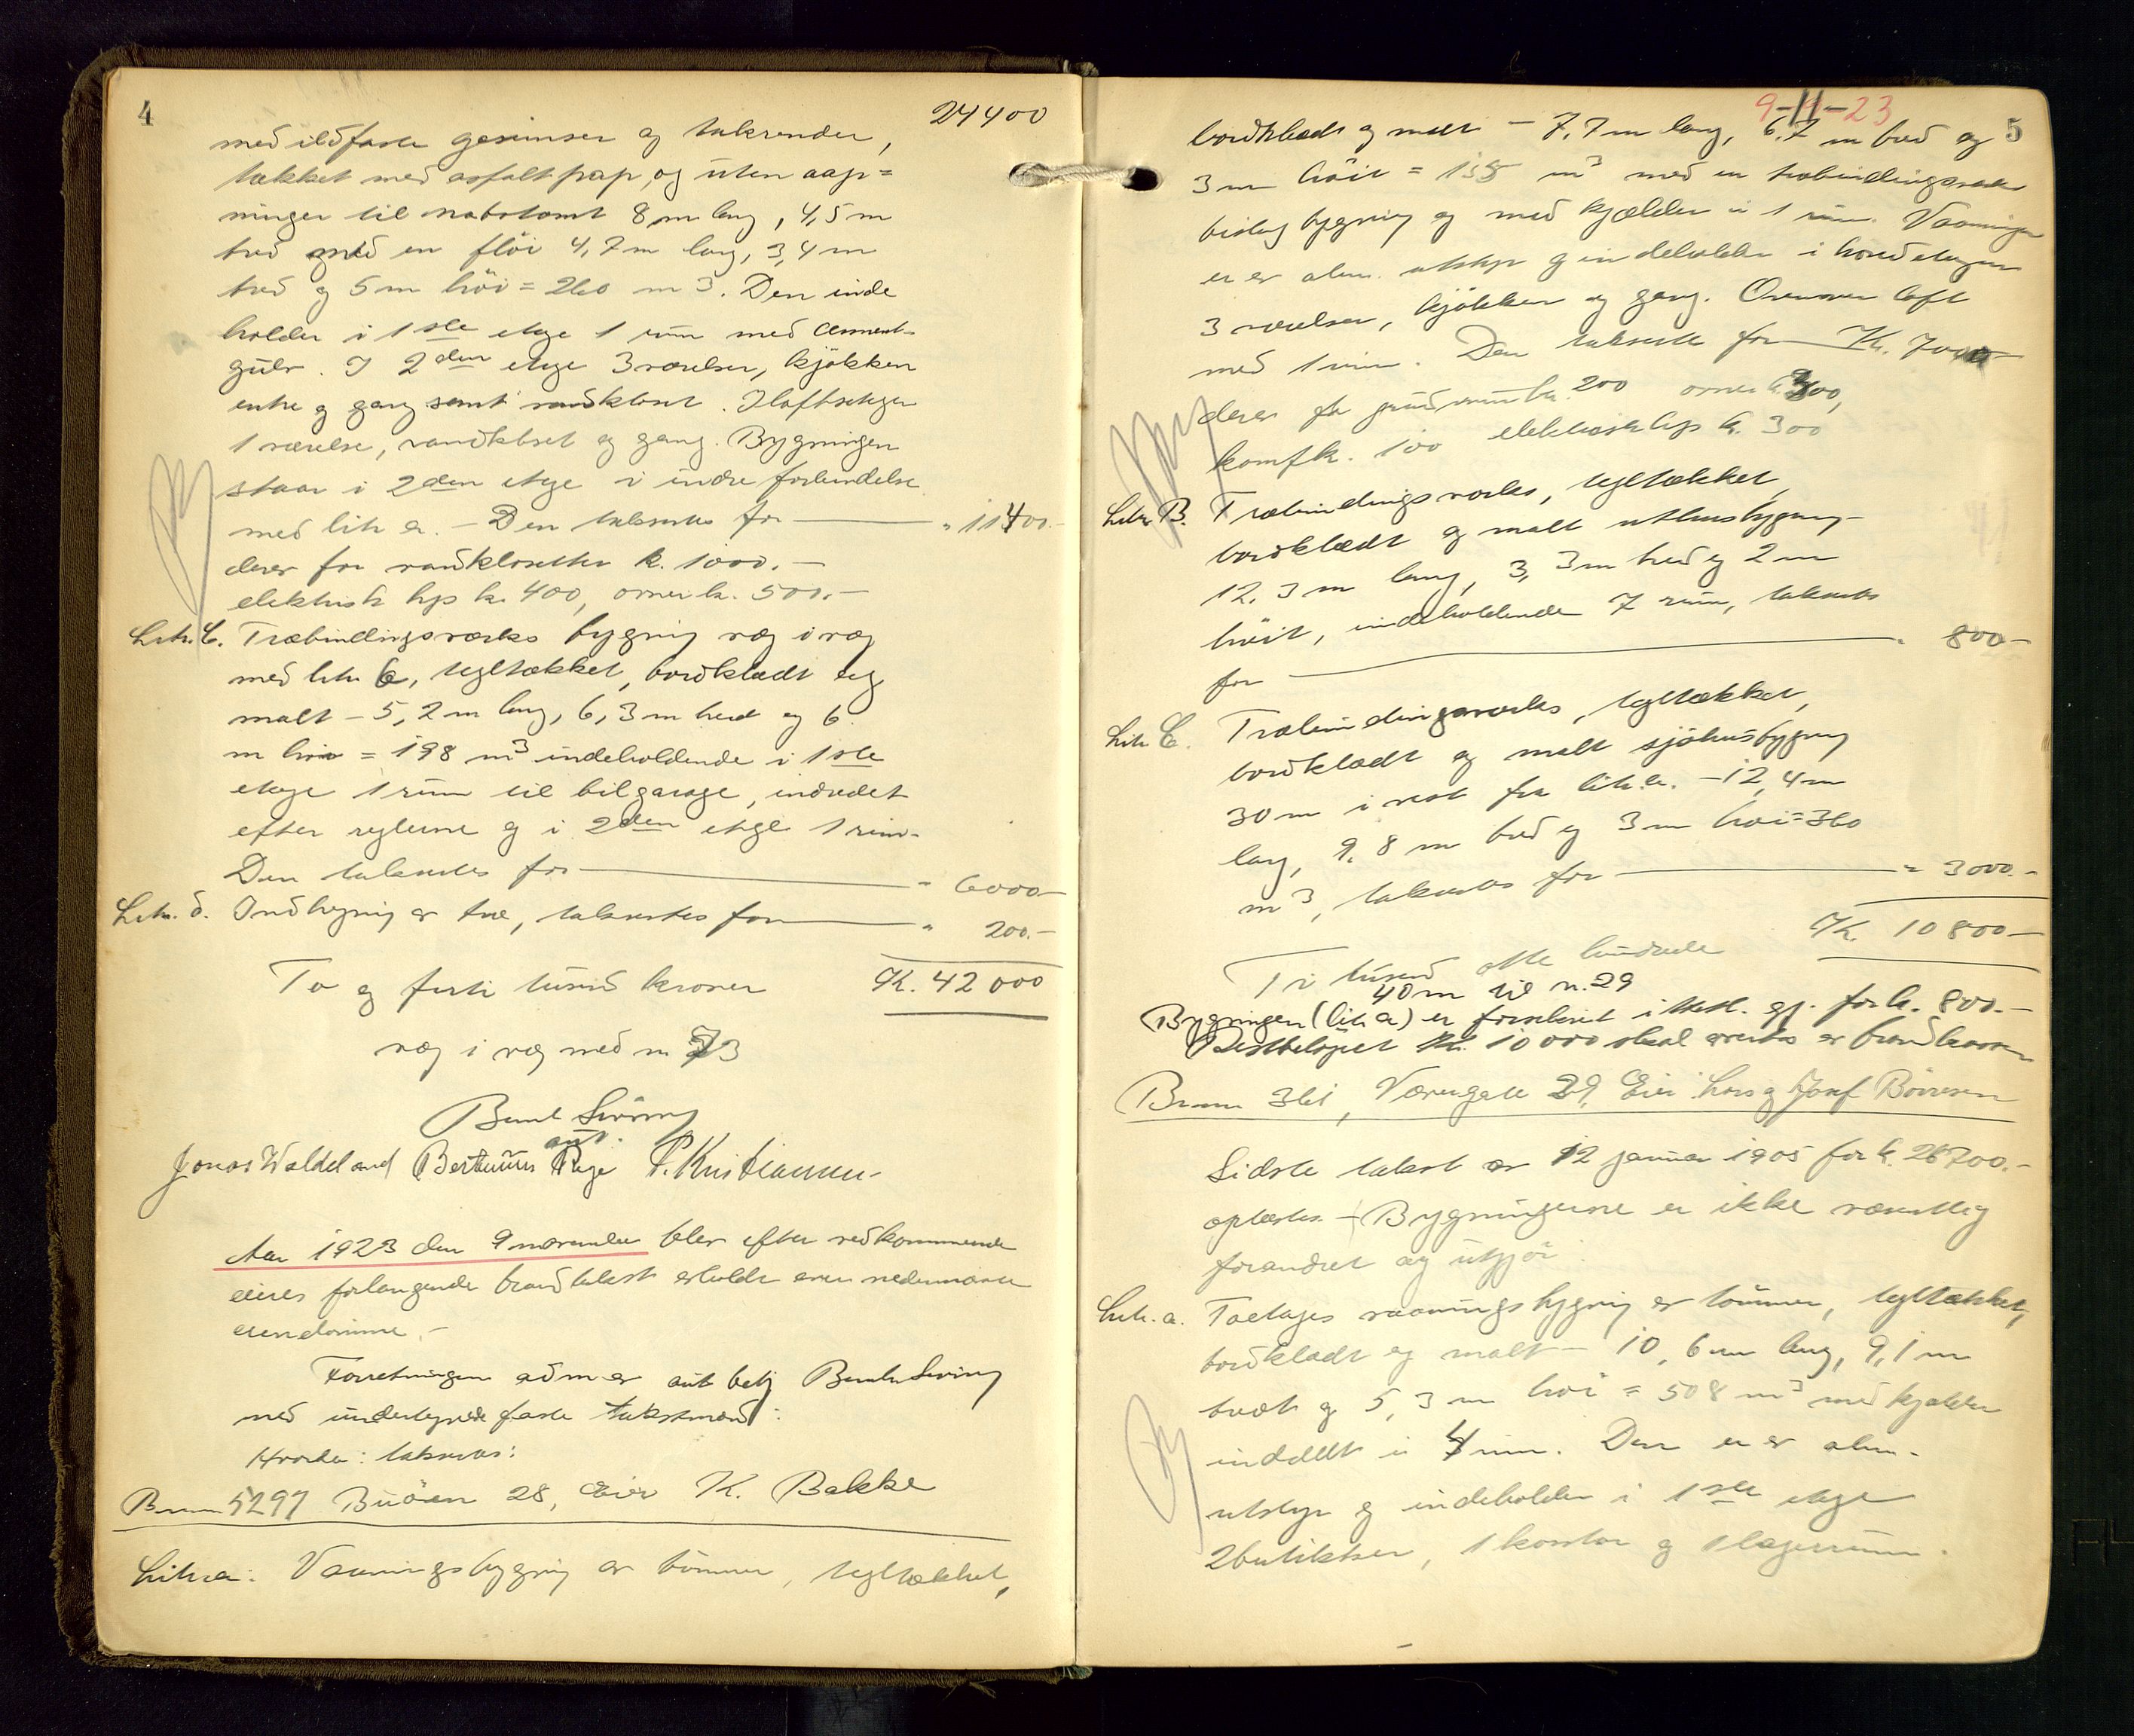 4
24400
med ildfaste gesimser og takrender,
tækket med asfaltpap, og uten aap=
ninger til nabotomt 8 m lang, 4,5 m
bred med en flöi 4,7 m lang, 3,4 m
bred og 5 m höi = 260 m3. Den inde
holder i 1ste etage 1 rum med cement-
gulv. I 2den etage 3 værelser, kjökken
entre og gang samt vandklosett. I loftsetagen
1 værelse, vandkloset og gang. Bygningen
staar i 2den etage i indre forbindelse
med litr a. - Den taksertes for " 11400.-
derav for vandklosetter k. 1000.-
elektrisk lys k. 400, ovner k. 500.-
Litr. C. Træbindingsværks bygning væg i væg
med litr b, tegltækket, bordklædt og
malt - 5,2 m lang, 6,3 m bred og 6
m höi = 198 m3 indeholdende i 1ste
etage 1 rum til bilgarage, indredet
efter reglerne og i 2den etage 1 rum.
Den taksertes for " 6000-
Litr. d. Indhegning av træ, taksertes for " 200.-
To og firti tusind kroner K. 42 000
væg i væg med n 73
Bernt Sviring
aut.
Jonas Waldeland Bertinius Rege P. Kristiansen-
Aar 1923 den 9 november blev efter vedkommende
eieres forlangende brandtakst avholdt over nedennævnte
eiendomme.-
Forretningen adm av aut betj Bernt Sviring
med undertegnede faste takstmænd:
Hvorda: taksertes:
Brnr 5297 Buöen 28, Eier K. Bakke
Litr a: Vaaningsbygning av tömmer, tegltækket,
9-11-23
5
bordklædt og malt - 7,7 m lang, 6,7 m bred og
3 m höit = 155 m3 med en træbindingsværks
bislag bygning og med kjælder i 1 rum. Vaaningen
er av alm. utstyr og indeholder i hovedetagen
3 værelser, kjökken og gang. Ovenover loft
med 1 rum. Den taksertes for Kr. 7000
derav for grundmur kr. 200 ovner k. 300,
komf k. 100 elektrisk lys k. 300
Litr B. Træbindingsværks, tegltækket,
bordklædt og malt uthusbygning
12,3 m lang, 3,3 m bred og 2 m
höit, indeholdende 7 rum, taksertes
for " 800-
Litr C. Træbindingsværks, tegltækket,
bordklædt og malt sjöhusbygning
30 m i vest fra litr. a. - 12,4 m
lang, 9,8 m bred og 3 m höi = 360
m3, taksertes for " 3000.-
Ti tusind otte hundrede K. 10800-
40 m til n. 29
Bygningen (litr a) er forsikret i for k. 800.-
Restbelöpet Kr. 10000 skal av brandkassen
Brnr 361, Værengate 29, Eier Lars og Josef Börresen
Sidste takst av 12 januar 1905 for k. 26700.-
oplæstes. - Bygningerne er ikke væsentlig
forandret og utgjör:
Litr. a. Toetages vaaningsbygning av tömmer, tegltækket,
bordklædt og malt - 10,6 m lang, 9,1 m
bredt og 5,3 m höi = 508 m3 med kjælder
inddelt i 4 rum. Den er av alm.
utstyr og indeholder i 1ste etage
2 butikker, 1 kontor og 1 lagerrum.